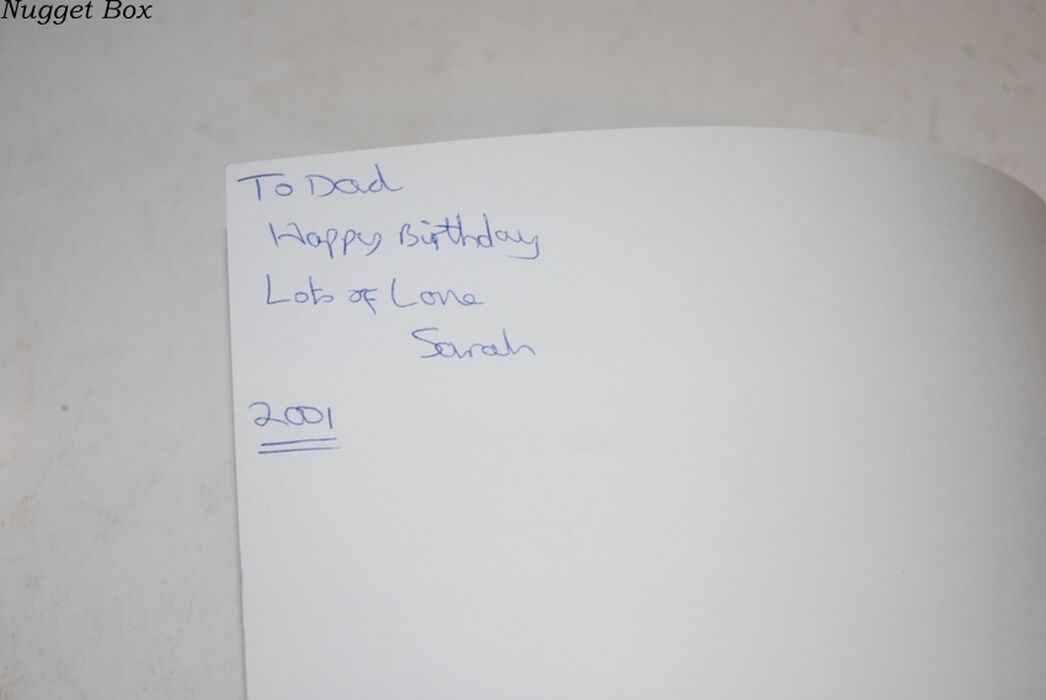 Nugget Box
To Dad
Happy Birthday
Lots of Love
Sarah
2001